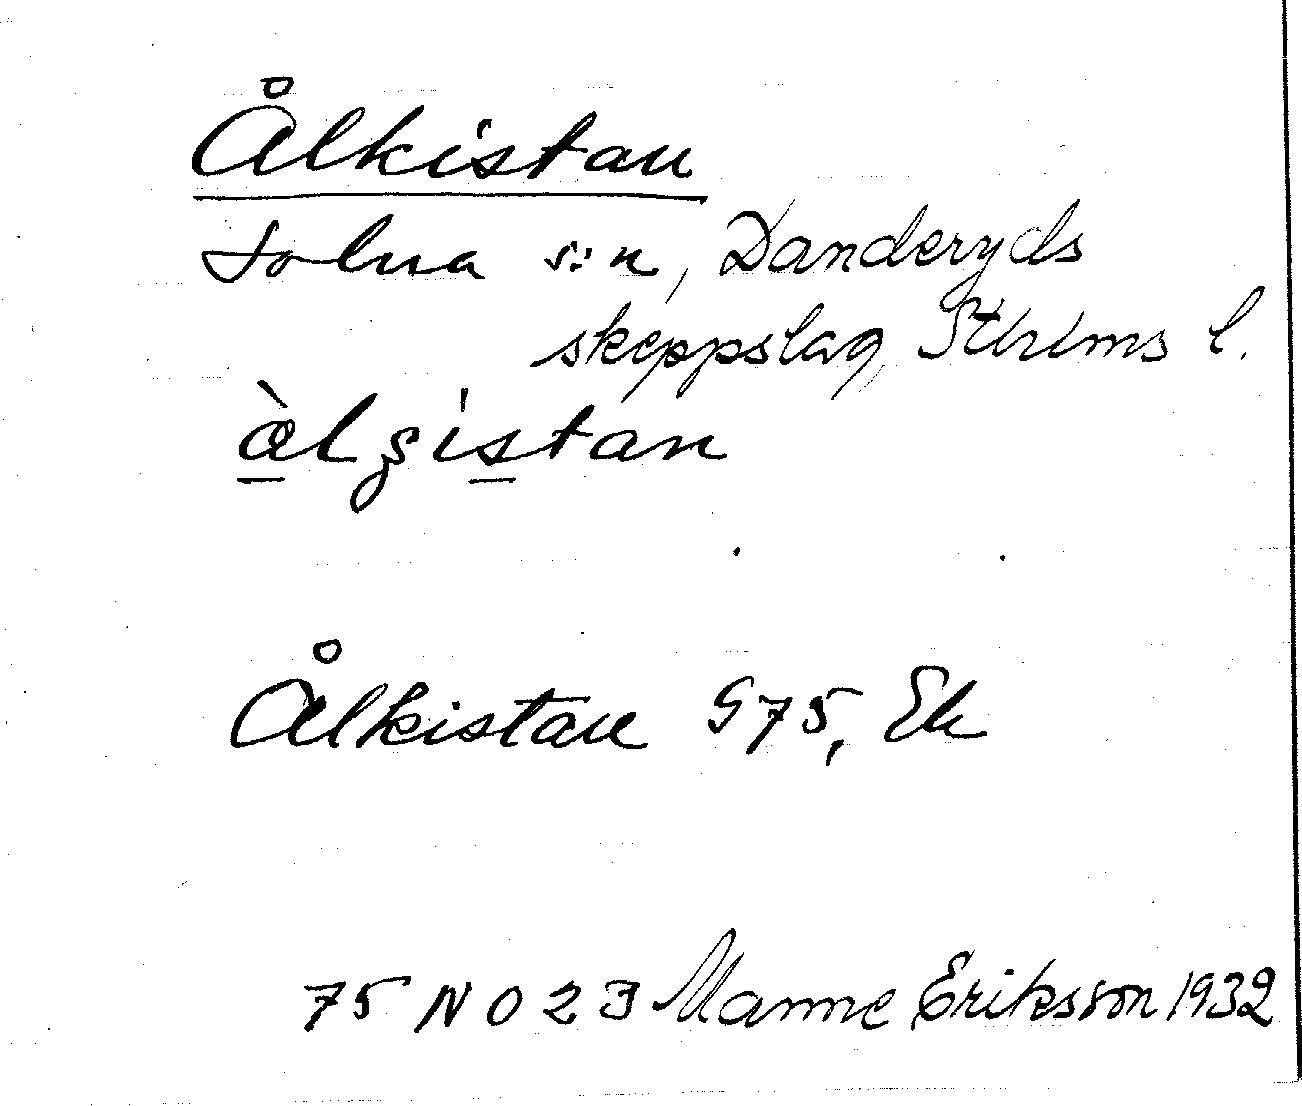 Ålkistan
Solna s:n, Danderyds
skeppslag, Sthlms l.
Ålkistan G75, Ek
75 NO 23 Manne Eriksson 1932